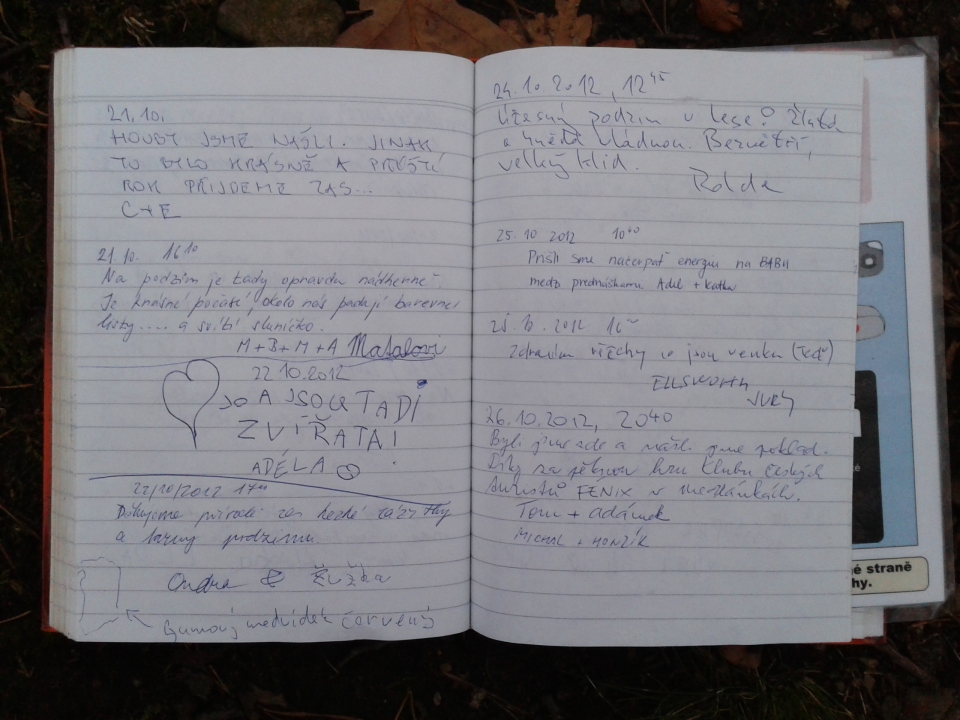 21.10.
HOUBY JSME NAŠLI. JINAK
TO BYLO KRÁSNĚ A PŘÍŠTÍ
ROK PŘIJDEME ZAS...
C+E
21.10. 16¹⁰
Na podzim je tady opravdu nádherně.
Je krásné počasí, okolo nás padají barevné
listy..... a svítí sluníčko.
M+B+M+A Matalovi
22.10.2012
JO A JSOU TADÍ
ZVÍŘATA!
ADÉLA
22/10/2012 17
Děkujeme přírodě za hezké
a barvy podzimu.
Ondra & Žužka
Gumový medvídek červený
24.10.2012, 12⁴⁵
Úžasný podzim v lese? Zlatá
a hnědá vládnou. Bezvětří,
velký klid.
25.10 2012 10⁴⁰
Prišli sme načerpať energiu na BABU
medzi prednáškami Adel + Katka
2012
Zdravím všechny co jsou venku (teď)
ELLSWORTH
26.10.2012, 20⁴⁰
Byli jsme zde a našli jsme poklad.
Díky za pěknou hru klubu českých
turistů FÉNIX v Medlánkách.
Tom + adámek
MICHAL + HONZÍK
é straně
hy.